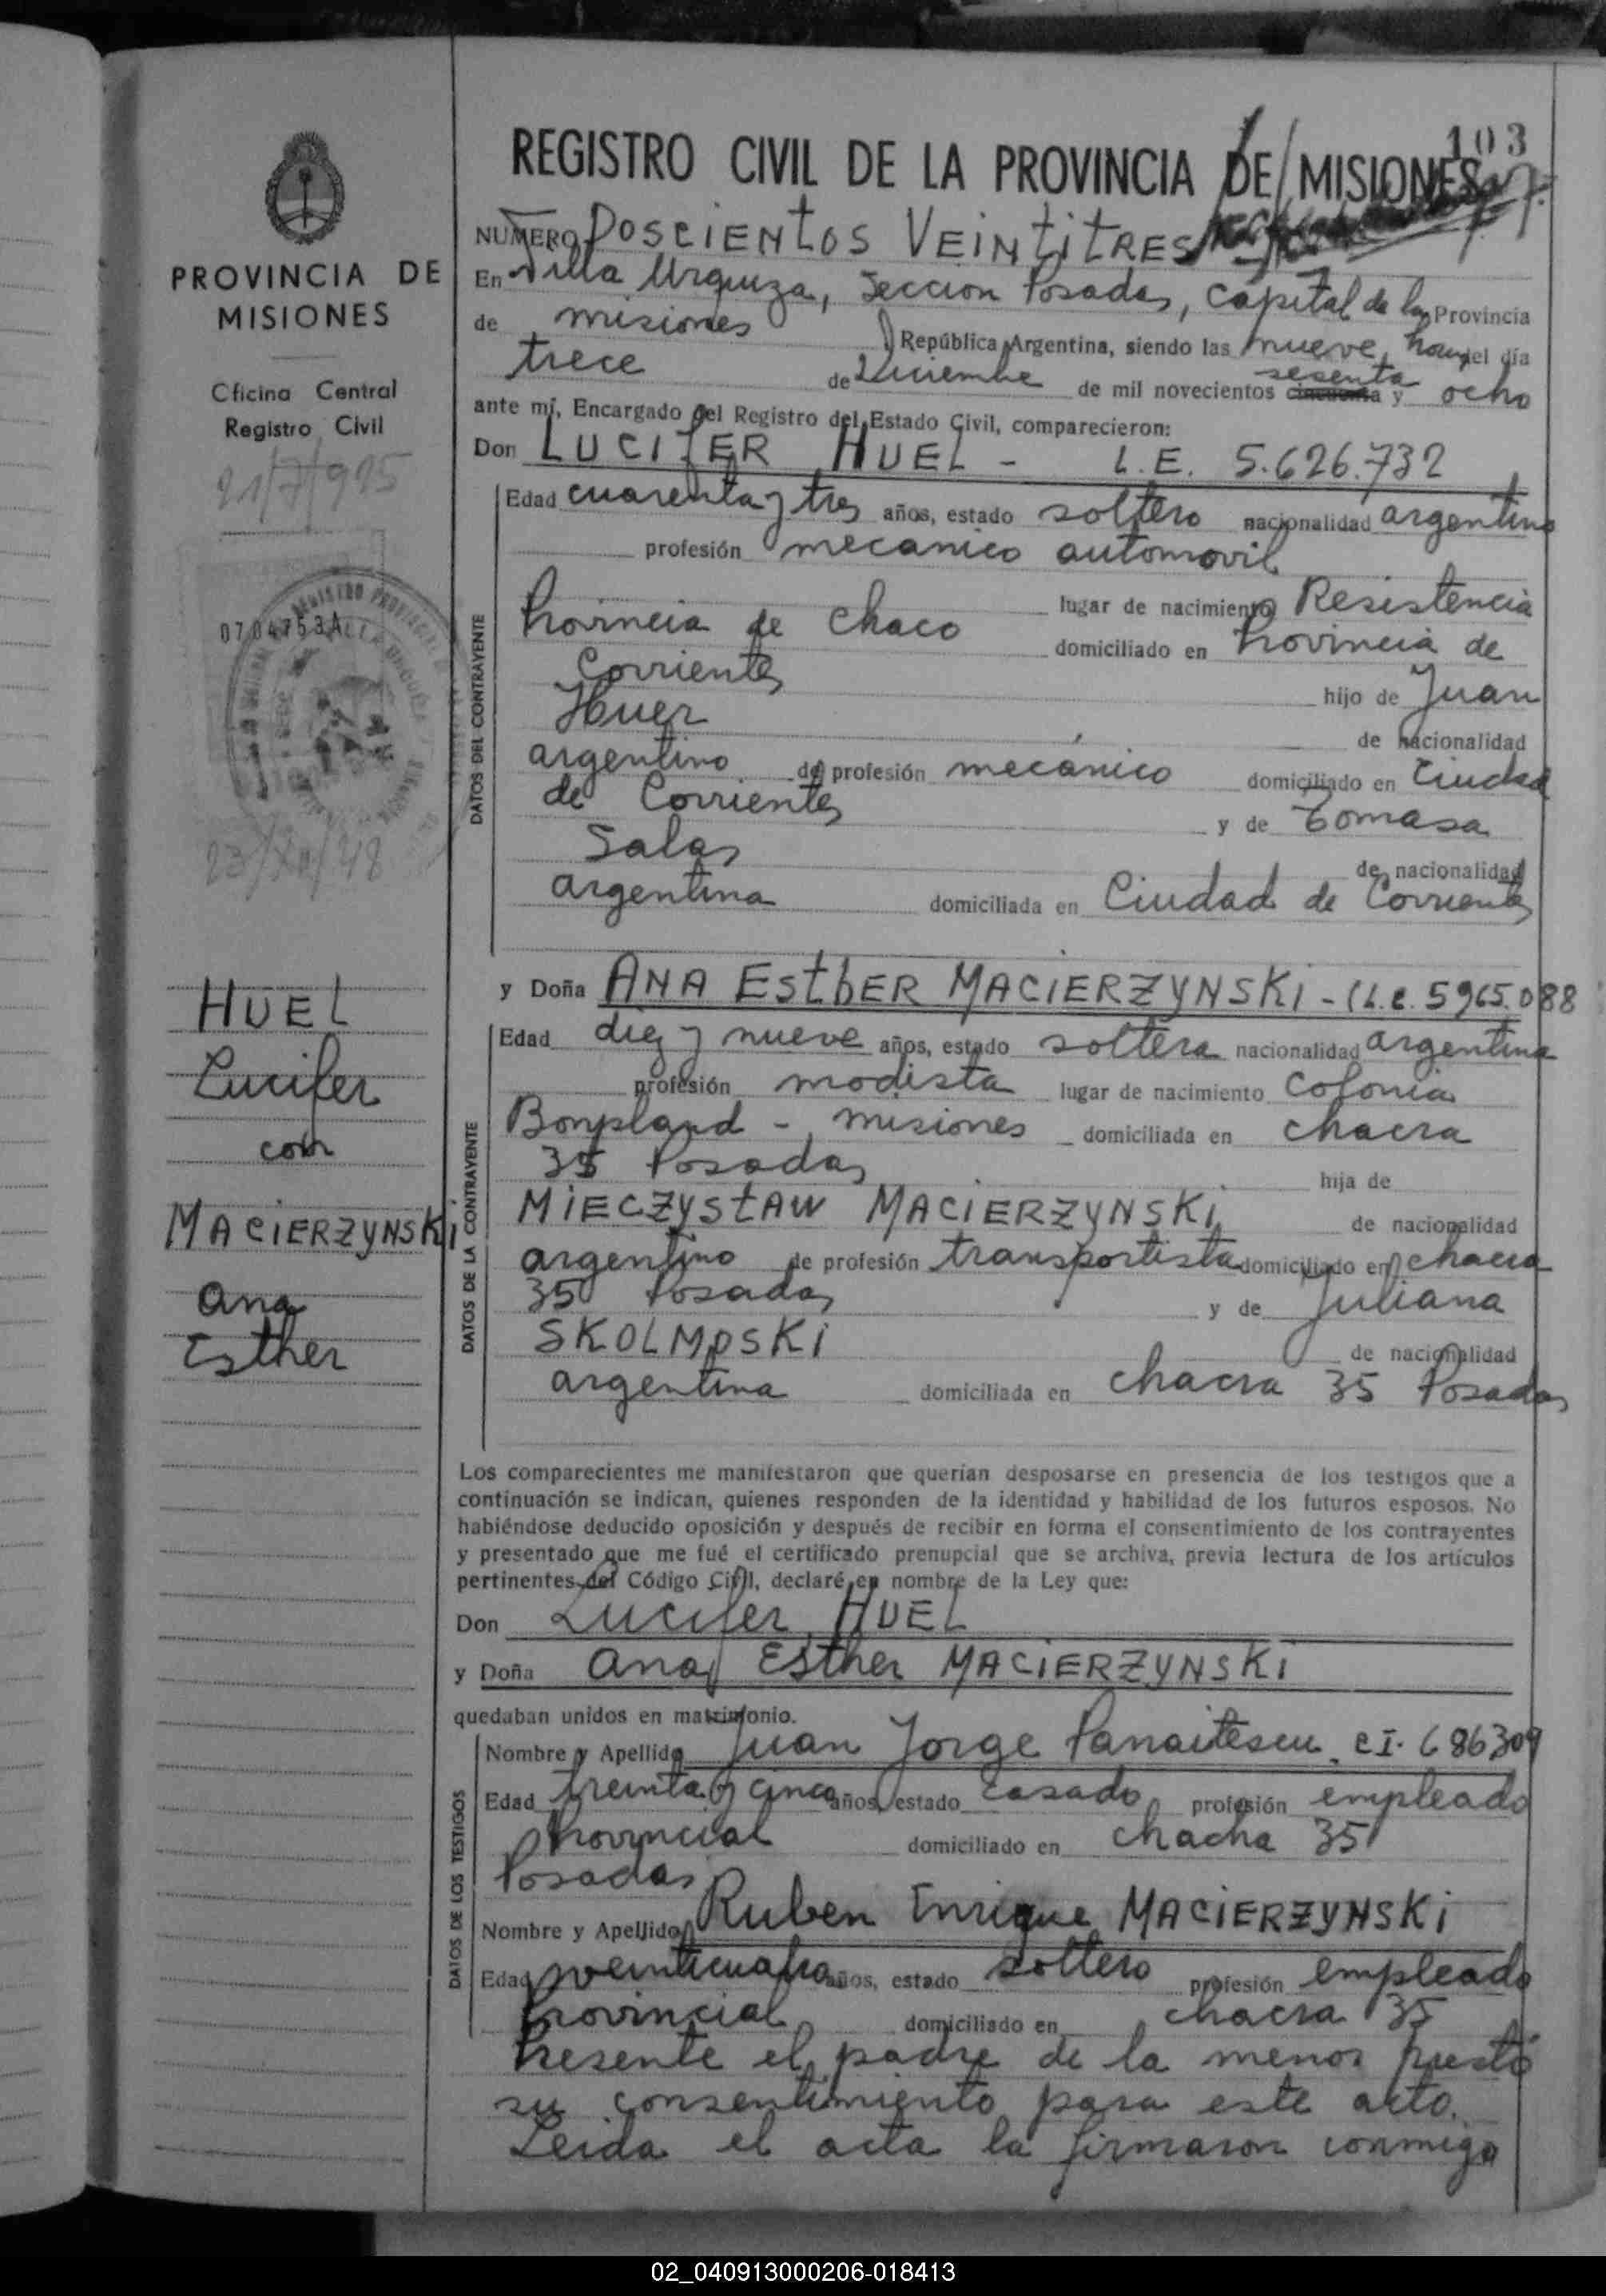 103
REGISTRO CIVIL DE LA PROVINCIA DE MISIONES
NUMERO DOSCIENTOS VEINTITRES
En Villa Urquiza, Seccion Posadas, Capital de la Provincia
de misiones República Argentina, siendo las nueve horas del día
trece de Diciembre de mil novecientos sesenta y ocho
ante mí, Encargado del Registro del Estado Civil, comparecieron:
Don LUCIFER HUEL - L.E. 5.626.732
Edad cuarenta y tres años, estado soltero nacionalidad argentino
profesión mecanico automovil
lugar de nacimiento Resistencia
Provincia de Chaco domiciliado en Provincia de
Corrientes
hijo de Juan
Huer
de nacionalidad
argentino de profesión mecánico domiciliado en Ciudad
de Corrientes
y de Tomasa
Salas
de nacionalidad
argentina domiciliada en Ciudad de Corrientes
y Doña ANA EStHER MACIERZYNSKi - (L.C. 5965.088
Edad diez y nueve años, estado soltera nacionalidad argentina
profesión modista lugar de nacimiento Colonia
Bonpland - misiones domiciliada en chacra
35 Posadas
hija de
MiECZYStAW MACIERZYNSKi
de nacionalidad
argentino de profesión transportista domiciliado en chacra
35 Posadas y de Juliana
SKOLMOSKi
de nacionalidad
argentina domiciliada en chacra 35 Posadas
Los comparecientes me manifestaron que querían desposarse en presencia de los testigos que a
continuación se indican, quienes responden de la identidad y habilidad de los futuros esposos. No
habiéndose deducido oposición y después de recibir en forma el consentimiento de los contrayentes
y presentado que me fué el certificado prenupcial que se archiva, previa lectura de los artículos
pertinentes del Código Civil, declaré en nombre de la Ley que:
Don Lucifer HUEL
y Doña Ana Esther MACIERZYNSKi
quedaban unidos en matrimonio.
Nombre y Apellido Juan Jorge Panaitescu C.I. 686309
Edad treinta y cinco años, estado casado profesión empleado
Provincial domiciliado en chacha 35
Posadas
Nombre y Apellido Ruben Enrique MACIERZYNSKi
Edad veinticuatro años, estado soltero profesión empleado
Provincial domiciliado en chacra 35
Presente el padre de la menor prestó
su consentimiento para este acto.
Leida el acta la firmaron conmigo
DATOS DEL CONTRAYENTE
DATOS DE LA CONTRAYENTE
DATOS DE LOS TESTIGOS
PROVINCIA DE
MISIONES
Oficina Central
Registro Civil
21/7/915
0704753A
HUEL
Lucifer
con
MACIERZYNSKi
Ana
Esther
02_040913000206-018413